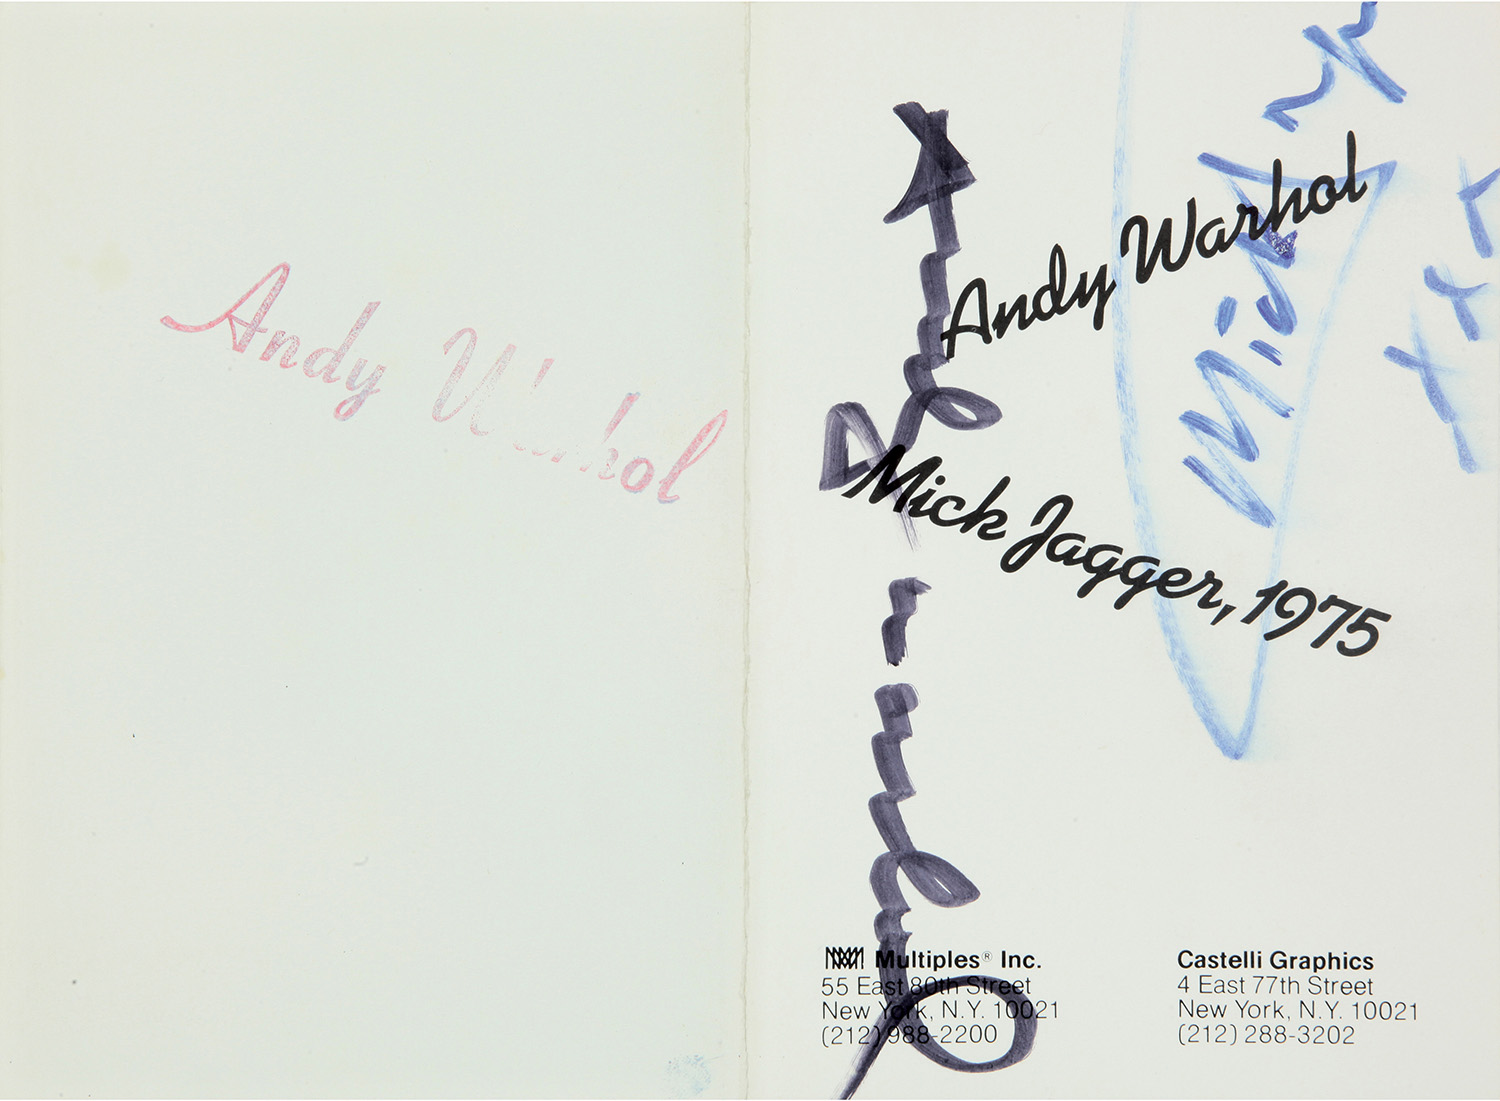 Andy Warhol
Andy Warhol
Mick Jagger, 1975
Multiples® Inc.
55 East 80th Street
New York, N.Y. 10021
(212) 988-2200
Castelli Graphics
4 East 77th Street
New York, N.Y. 10021
(212) 288-3202